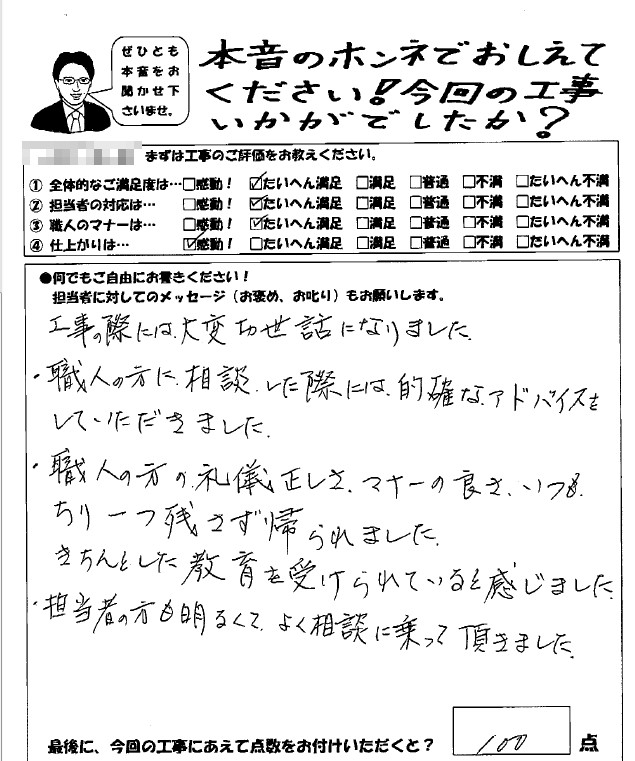 ぜひとも
本音をお
聞かせ下
さいませ。
本音のホンネでおしえて
ください!今回の工事
いかがでしたか?
まずは工事のご評価をお教えください。
① 全体的なご満足度は…□感動! ☑たいへん満足 □満足 □普通 □不満 □たいへん不満
② 担当者の対応は… □感動! ☑たいへん満足 □満足 □普通 □不満 □たいへん不満
③ 職人のマナーは… □感動! ☑たいへん満足 □満足 □普通 □不満 □たいへん不満
④ 仕上がりは… ☑感動! □たいへん満足 □満足 □普通 □不満 □たいへん不満
●何でもご自由にお書きください!
担当者に対してのメッセージ(お褒め、お叱り)もお願いします。
工事の際には、大変お世話になりました。
・職人の方に、相談した際には、的確なアドバイスを
していただきました。
・職人の方の、礼儀正しさ、マナーの良さ、いつも、
ちり一つ残さず帰られました。
きちんとした教育を受けられていると感じました。
・担当者の方も明るくて、よく相談に乗って頂きました。
最後に、今回の工事にあえて点数をお付けいただくと? 100 点